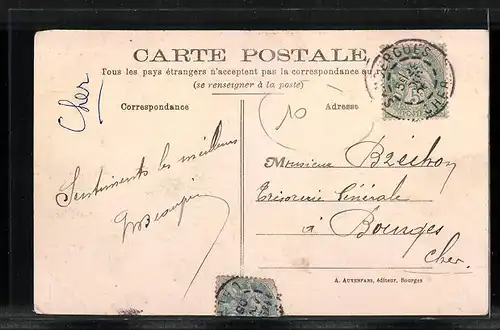 CARTE POSTALE
Tous les pays étrangers n'acceptent pas la correspondance au
(se renseigner à la poste)
Cher
Correspondance
Adresse
10
Sentiments les meilleurs
Monsieur Bréchon
Trésorerie Générale
à Bourges
Cher.
A. AUXENFANS, éditeur, Bourges